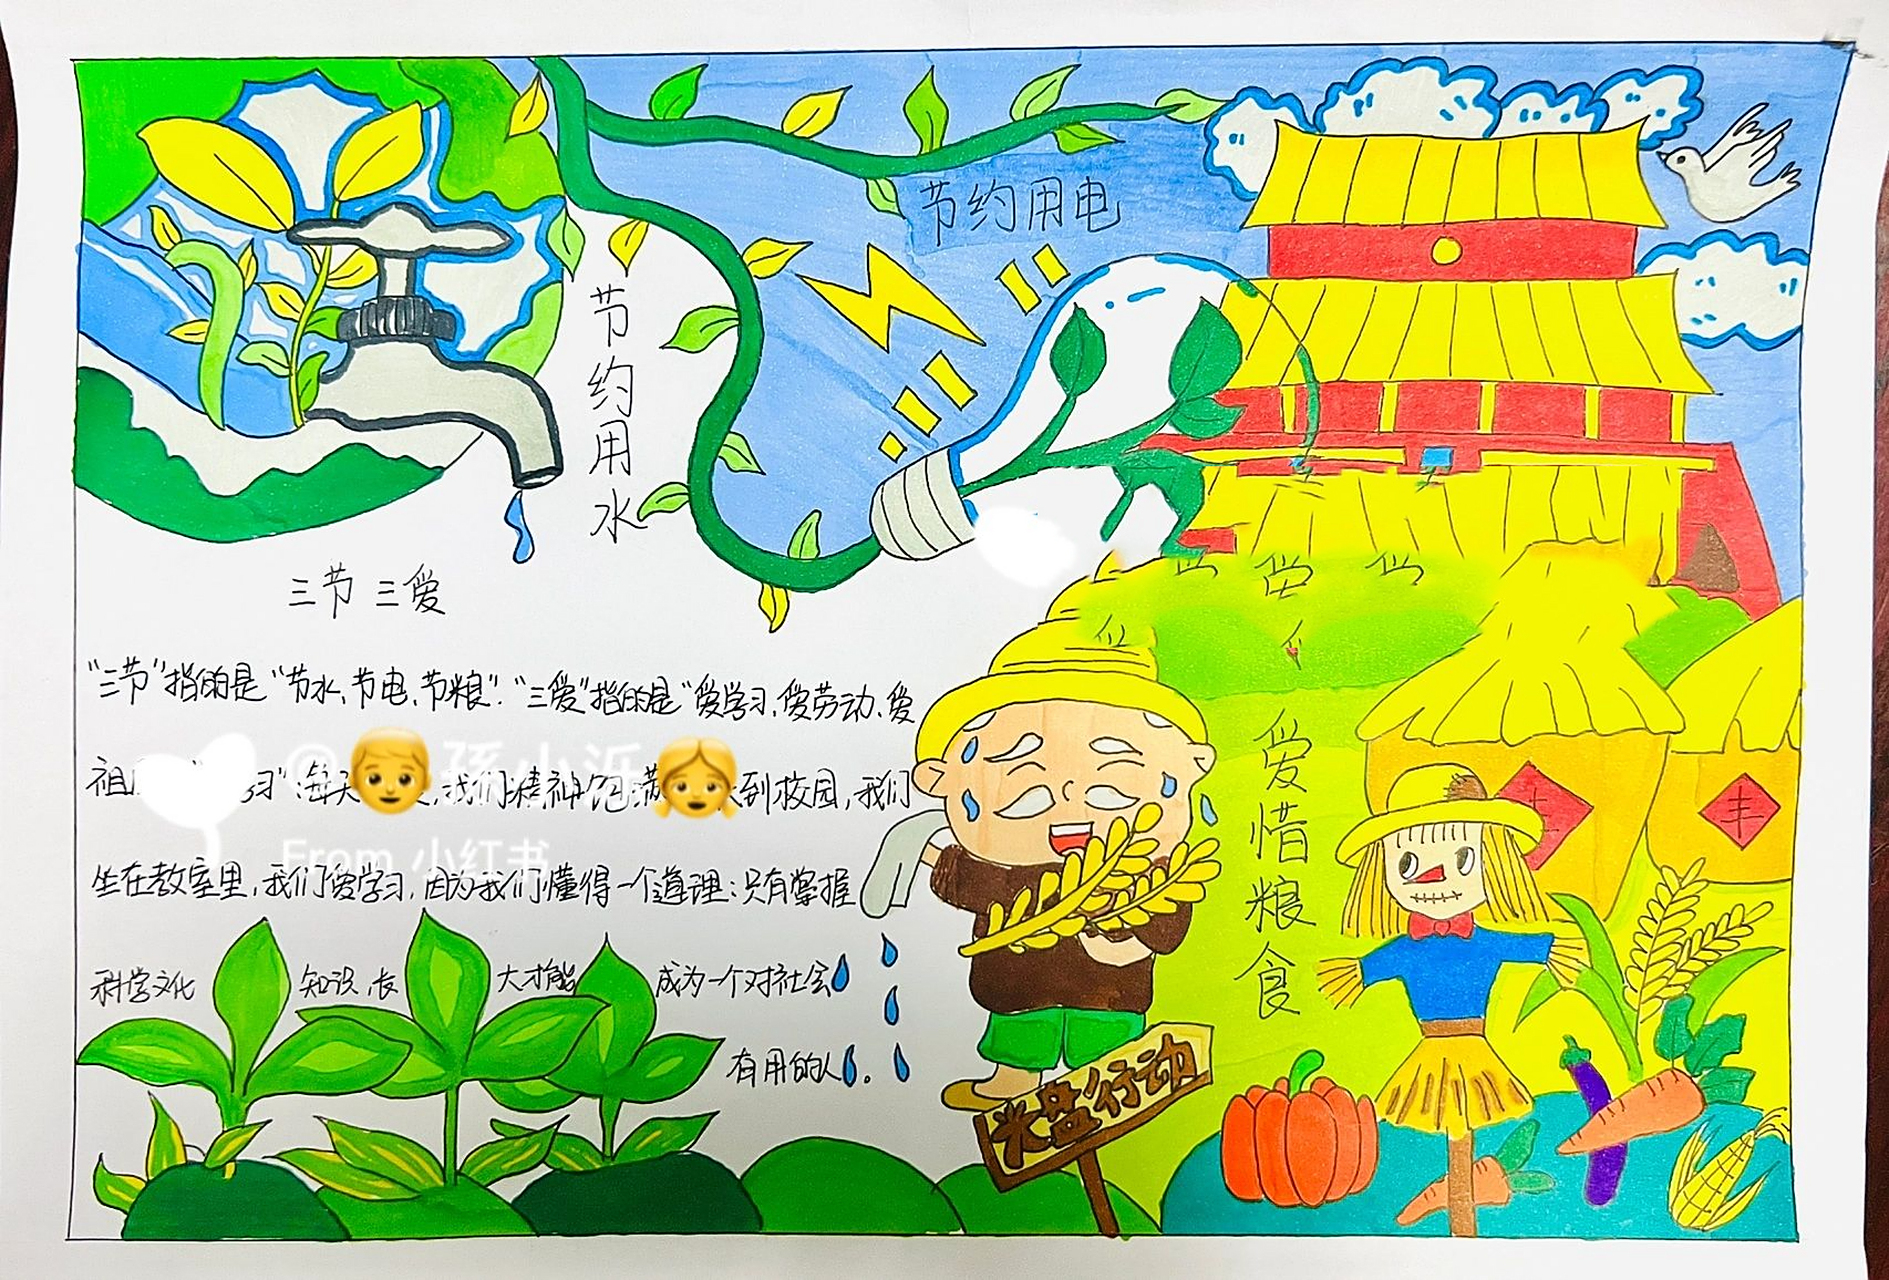 节约用电
节约用水
三节 三爱
"三节"指的是"节水、节电、节粮"."三爱"指的是"爱学习、爱劳动、爱
祖 习":每天 ,我们精神饱满 到校园,我们
坐在教室里,我们爱学习,因为我们懂得一个道理:只有掌握
科学文化 知识,长 大才能 成为一个对社会
有用的人。
爱惜粮食
丰
丰
盘行动
@ 孫小泺
From 小红书